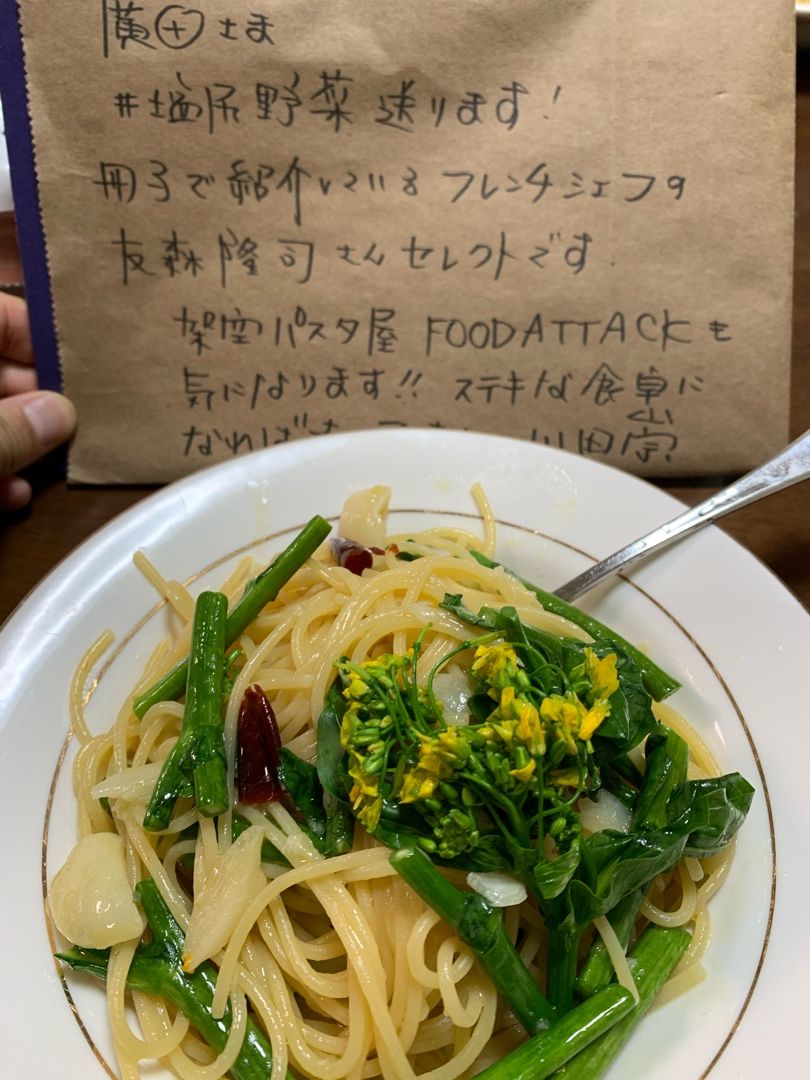 廣田さま
#塩尻野菜 送ります!
冊子で紹介している フレンチシェフの
友森隆司さんセレクトです.
架空パスタ屋 FOODATTACKも
気になります!! ステキな食卓に
なれば